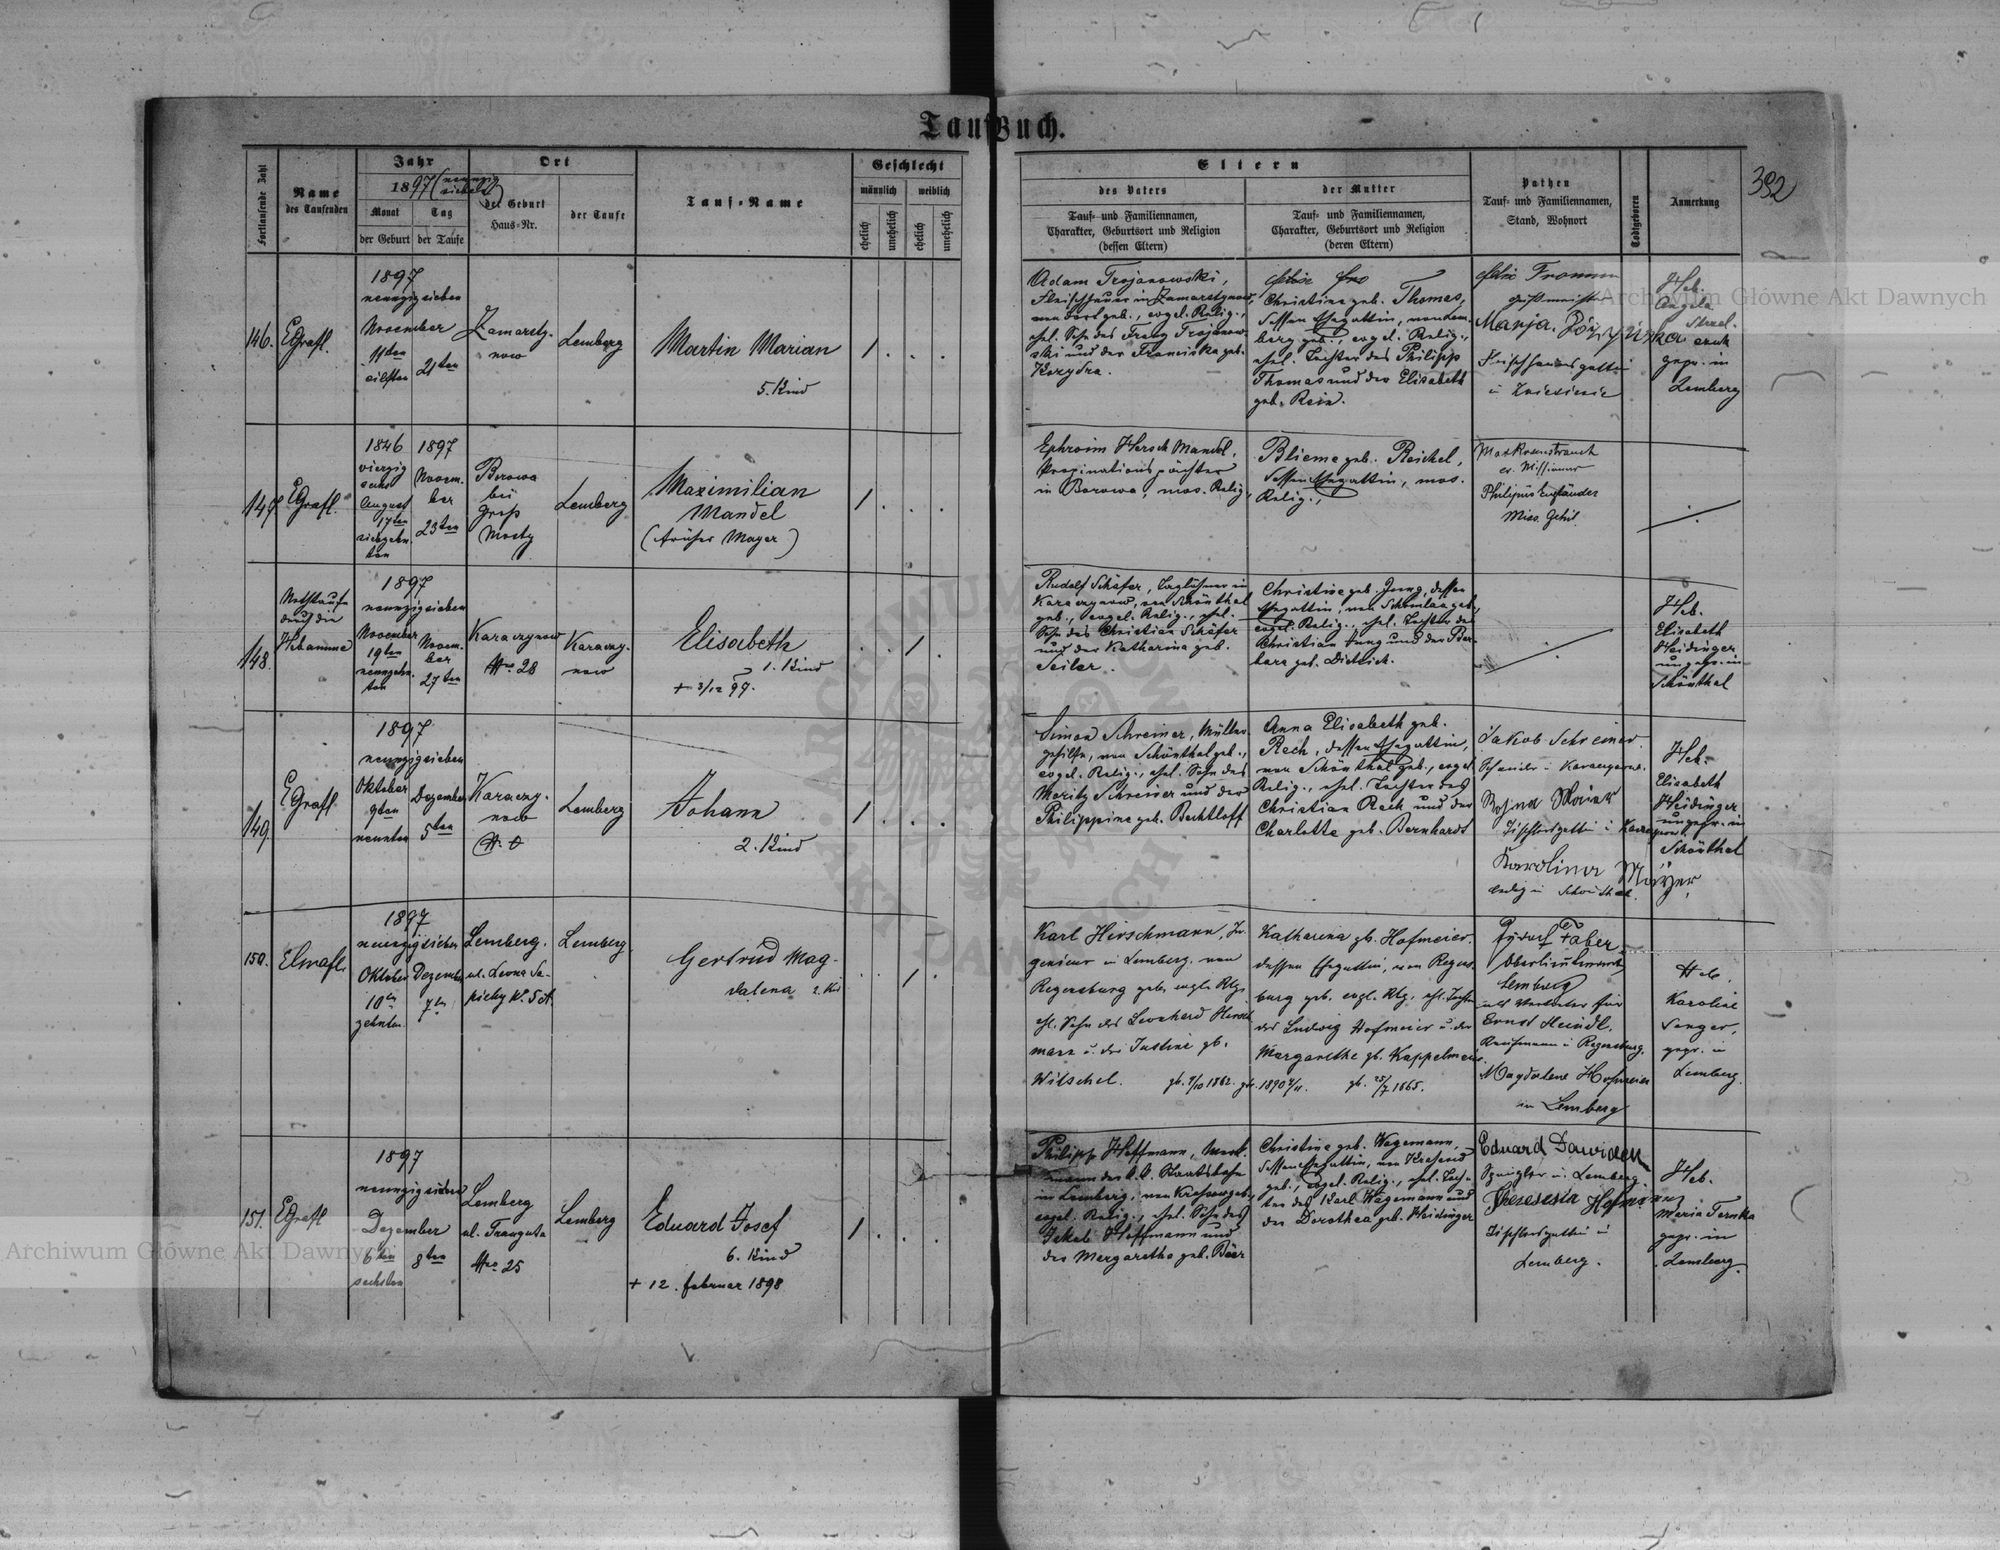 TaufBuch.
392
Fortlaufende Zahl
Name
des Taufenden
Jahr
1897 (neunzig
sieben)
Monat
Tag
der Geburt
der Taufe
Ort
der Geburt
Haus-Nr.
der Taufe
Tauf-Name
Geschlecht
männlich
weiblich
ehelich
unehelich
ehelich
unehelich
Eltern
des Vaters
Tauf- und Familiennamen,
Charakter, Geburtsort und Religion
(dessen Eltern)
der Mutter
Tauf- und Familiennamen,
Charakter, Geburtsort und Religion
(deren Eltern)
Pathen
Tauf- und Familiennamen,
Stand, Wohnort
Todtgeboren
Anmerkung
146.
EGrafl.
1897
neunzigsieben
November
11ten
eilften
21ten
Zamarsty-
now
Lemberg
Martin Marian
5. Kind
1
Adam Trojanowski,
Fleischhauer in Zamarstynow,
geb., evgel. Relig.,
ehel. Sohn des Franz Trojanow-
ski und der Franciska geb.
Kozydra.
Christine geb. Thomas,
dessen Ehegattin, von Lem-
berg geb., evgel. Relig.,
ehel. Tochter des Philipp
Thomas und der Elisabeth
geb. Rein.
Fromm
Marja
Fleischhauersgattin
Heb.
Angela
gepr. in
Lemberg
147
EGrafl.
1846
vierzig
sechs
August
17ten
siebzehn-
ten
1897
Novem-
ber
23ten
Borowa
bei
Groß
Mosty
Lemberg
Maximilian
Mandel
(früher Mayer)
1
Ephroim Hersch Mandel,
Propinationspächter
in Borowa, mos. Relig.
Blieme geb. Reichel,
dessen Ehegattin, mos.
Relig.,
Max Rosenstrauch
ev. Missionar
Philipus Engländer
Miss. Gehil.
148.
Nothtaufe
durch die
Hebamme
1897
neunzigsieben
November
19ten
neunzehn-
ten
Novem-
ber
27ten
Karaczynow
Nro 28
Karaczy-
now
Elisabeth
1. Kind
+ 3/12 97.
1
Rudolf Schäfer, Taglöhner in
Karaczynow, von Schönthal
geb., evgel. Relig., ehel.
Sohn des Christian Schäfer
und der Katharina geb.
Seiler.
Christine geb. Jung, dessen
Ehegattin, von geb.,
evgel. Relig., ehel. Tochter des
Christian Jung und der Bar-
bara geb. Dietrich.
Heb.
Elisabeth
Heidinger
ungepr. in
Schönthal
149.
EGrafl
1897
neunzigsieben
Oktober
9ten
neunten
Dezember
5ten
Karaczy-
now
Lemberg
Johann
2. Kind
1
Simon Schreiner, Müller-
gehilfe, von Schönthal geb.,
evgel. Relig., ehel. Sohn des
Moritz Schreiner und der
Philippine geb. Bechtloff
Anna Elisabeth geb.
Rech, dessen Ehegattin,
von Schönthal geb., evgel.
Relig., ehel. Tochter des
Christian Rech und der
Charlotte geb. Bernhardt
Jakob Schreiner
Tischlersgattin
Karolina Mayer,
ledig in Schönthal
Heb.
Elisabeth
Heidinger
ungepr. in
Schönthal
150.
1897
neunzigsieben
Oktober
10ten
zehnten
Dezember
7ten
Lemberg.
ul. Leona Sa-
piehy N. 5A
Lemberg
Gertrud Mag-
dalena 2. Kd
1
Karl Hirschmann, In-
genieur in Lemberg, von
Regensburg geb. evgl. Rlg.
ehl. Sohn des Leonhard Hirsch-
mann u. der Justine gb.
Witschel.
Katharina gb. Hofmeier.
dessen Ehegattin, von Regens-
burg geb. evgl. Rlg. ehl. Tochter
des Ludwig Hofmeier u. der
Margarethe gb. Kappelmeier.
Faber
Oberlieutenant
Lemberg
als Vertreter für
Ernst Heindl.
Kaufmann i Regensburg.
Magdalene Hofmeier
in Lemberg
Heb.
Karoline
Senger,
gepr. in
Lemberg.
151.
EGrafl
1897
neunzigsieben
Dezember
6ten
sechsten
8ten
Lemberg
ul. Franguta
Nro 25
Lemberg
Eduard Josef
6. Kind
+ 12. februar 1898
1
Philipp Hoffmann, Werk-
mann der k. k. Staatsbahn
in Lemberg, von geb.,
evgel. Relig., ehel. Sohn des
Jakob Hoffmann und
der Margaretha geb. Bäer
Christine geb. Wagemann,
dessen Ehegattin, von
geb., evgel. Relig., ehel. Toch-
ter des Karl Wagemann und
der Dorothea geb. Heidinger
Eduard
Spengler in Lemberg.
Theresia Hofmann
Tischlersgattin i
Lemberg.
Heb.
Maria
gepr. in
Lemberg.
Archiwum Główne Akt Dawnych
Archiwum Główne Akt Dawnych